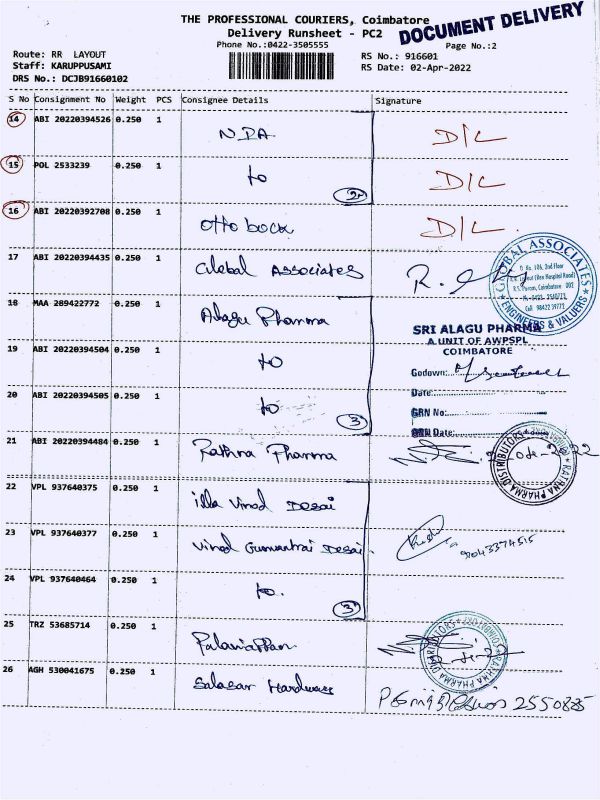 THE PROFESSIONAL COURIERS, Coimbatore
DOCUMENT DELIVERY
Delivery Runsheet - PC2
Phone No.:0422-3505555
Page No.:2
Route: RR LAYOUT
RS No.: 916601
Staff: KARUPPUSAMI
RS Date: 02-Apr-2022
DRS No.: DCJB91660102
S No Consignment No Weight PCS Consignee Details Signature
14 ABI 20220394526 0.250 1 NDA D/L
15 POL 2533239 0.250 1 to 2 D/L
16 ABI 20220392708 0.250 1 Otto bock D/L
17 ABI 20220394435 0.250 1 Global Associates R.
GLOBAL ASSOCIATES
ENGINEERS & VALUERS
18 MAA 289422772 0.250 1 Alagu Pharma
SRI ALAGU PHARMA
A UNIT OF AWPSPL
COIMBATORE
19 ABI 20220394504 0.250 1 to
Godown:
Date:
20 ABI 20220394505 0.250 1 to 3
GRN No:
GRN Date:
21 ABI 20220394484 0.250 1 Rathna Pharma
RATHNA PHARMA DISTRIBUTORS
22 VPL 937640375 0.250 1 illa Vinod Desai
23 VPL 937640377 0.250 1 Vinod Gunvantrai Desai
9043374515
24 VPL 937640464 0.250 1 to. 3
25 TRZ 53685714 0.250 1 Palaniappan
RATHNA PHARMA DISTRIBUTORS
26 AGH 530041675 0.250 1 Salasar Hardware
2550885